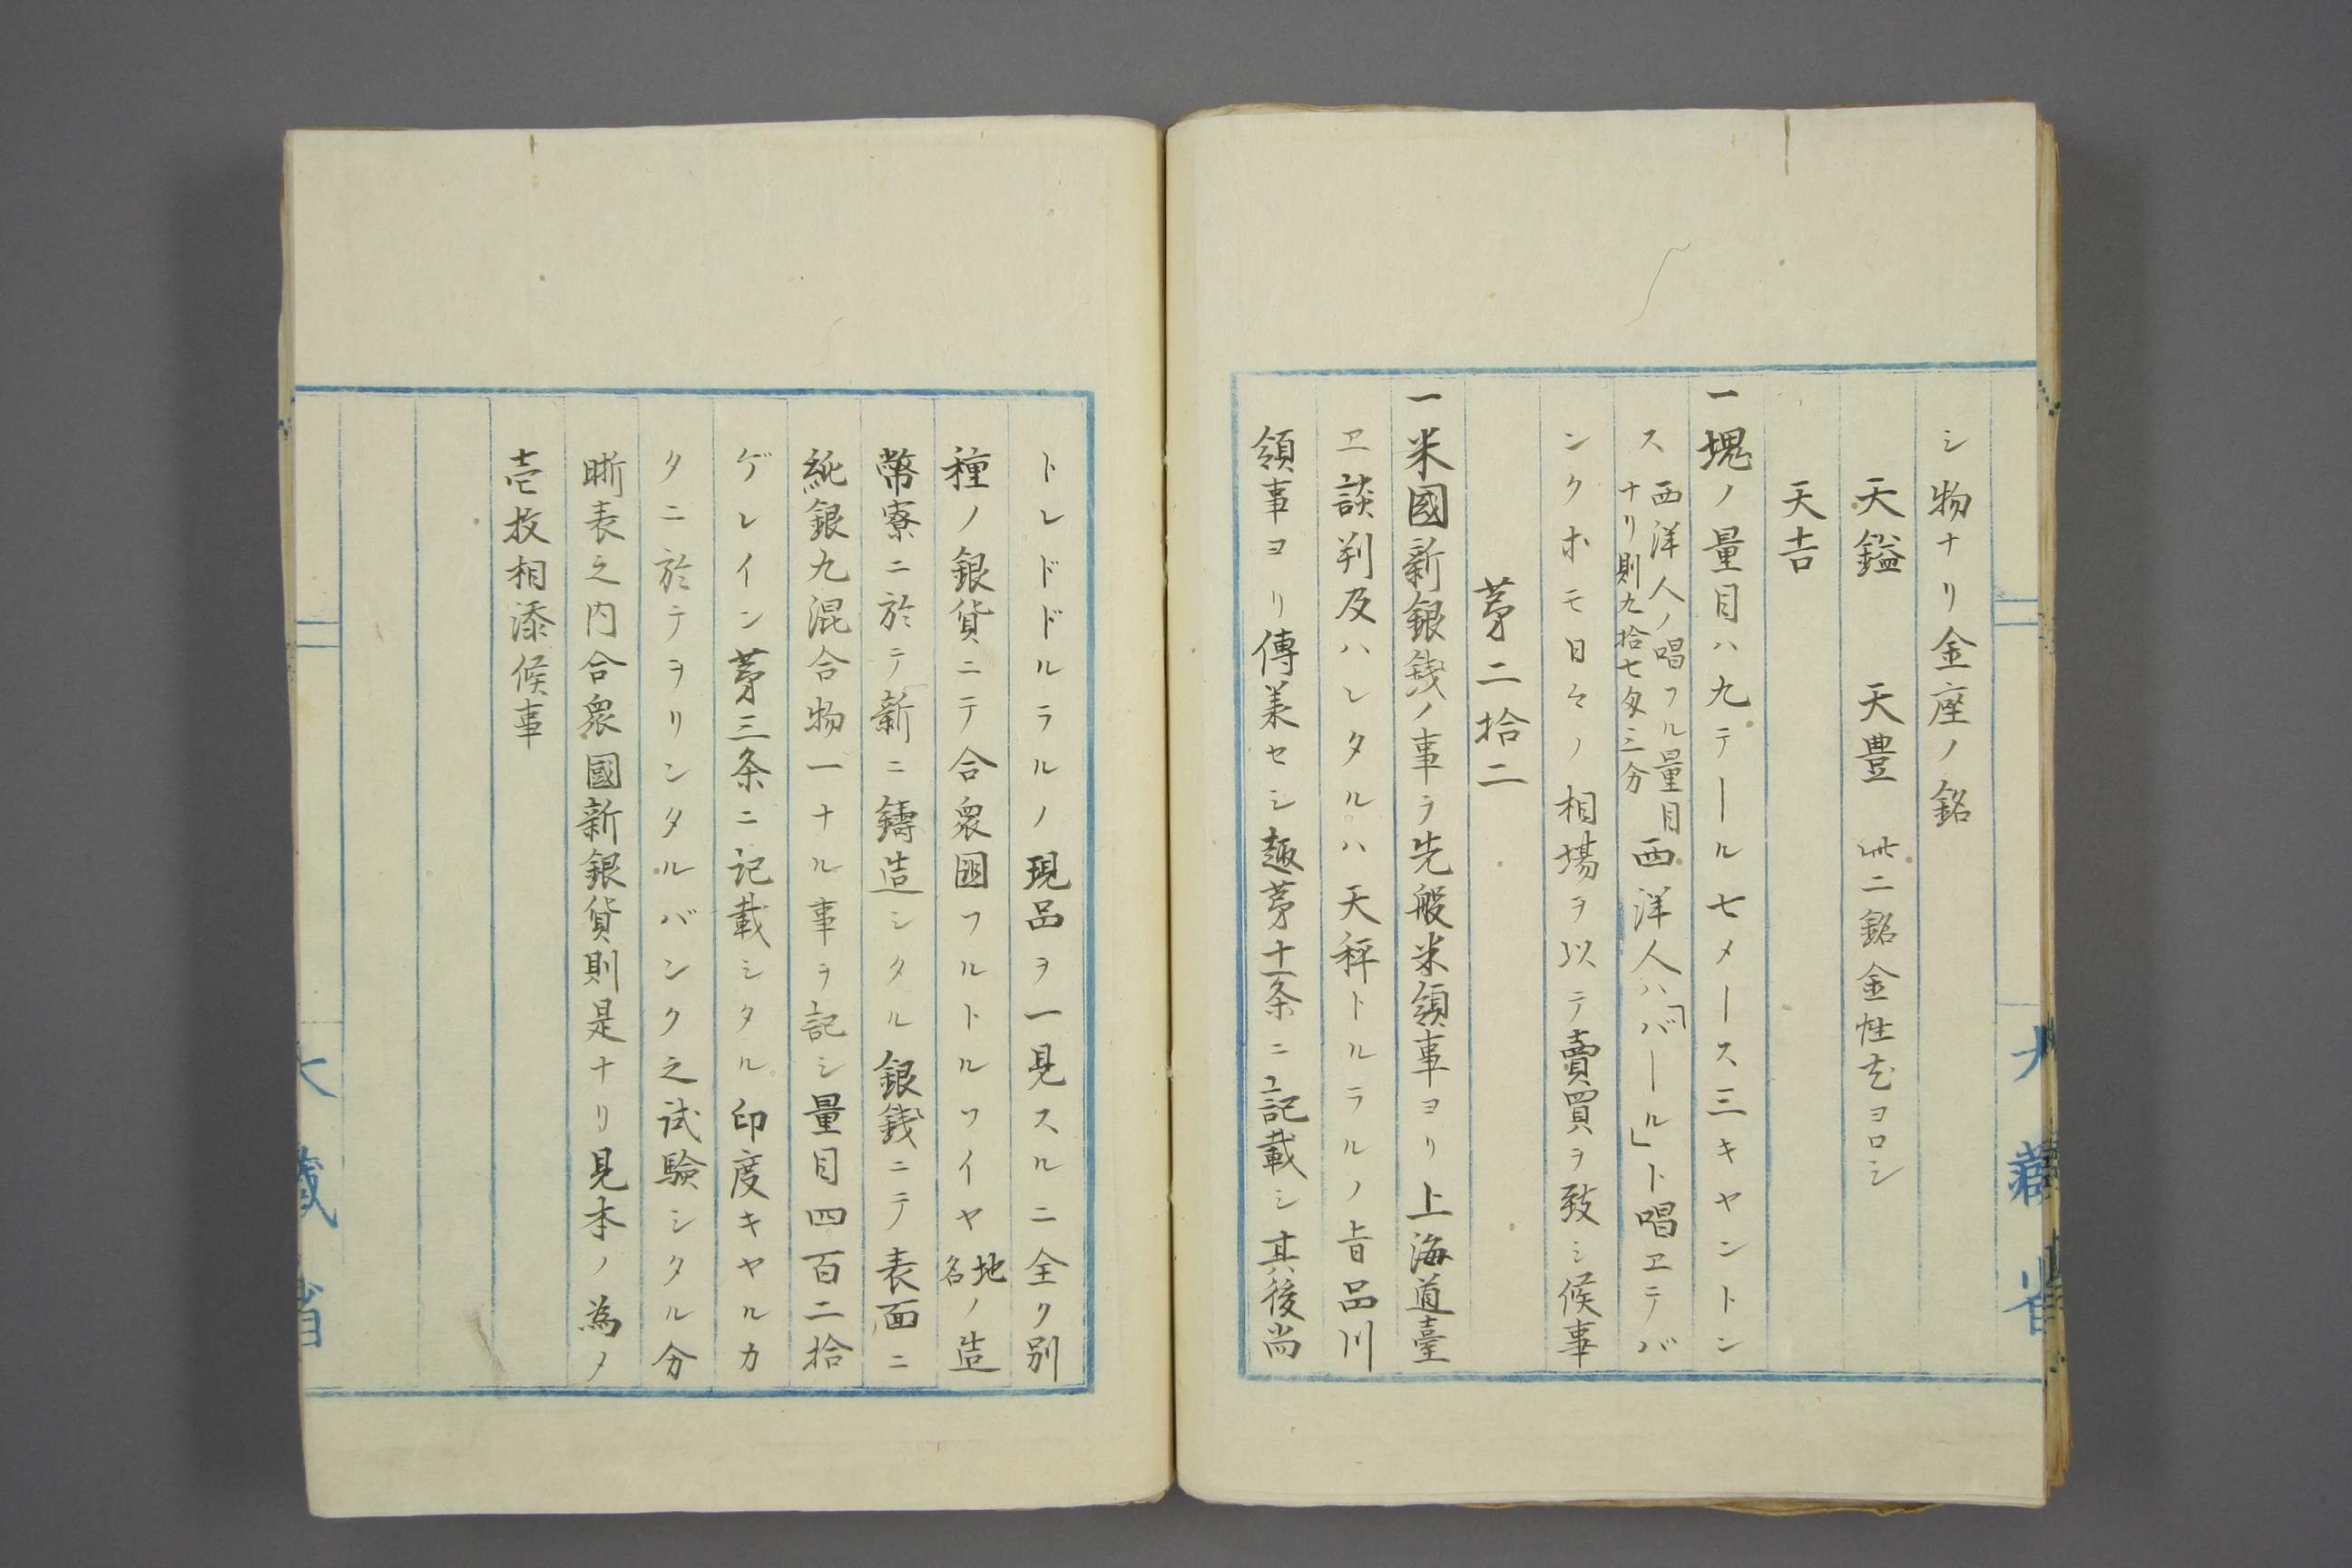 シ物ナリ金座ノ銘
天鎰　天豊　此二銘金性尤ヨロシ
天吉
一塊ノ量目ハ九テール七メース三キヤントン
ス西洋人ノ唱フル量目ナリ則九拾七匁三分西洋人ハ「バール」ト唱エテバ
ンクホモ日々ノ相場ヲ以テ賣買ヲ致シ候事
苐二拾二
一米國新銀錢ノ事ヲ先般米領事ヨリ上海道臺
エ談判及ハシタルハ天秤トルラルノ旨品川
領事ヨリ傳義セシ趣苐十一条ニ記載シ其後尚
トレドドルラルノ現品ヲ一見スルニ全ク別
種ノ銀貨ニテ合衆國フルトルワイヤ地名ノ造
幣寮ニ於テ新ニ鑄造シタル銀錢ニテ表面ニ
純銀九混合物一ナル事ヲ記シ量目四百二拾
ゲレイン苐三条ニ記載シタル印度キヤルカ
タニ於テヲリンタルバンク之試驗シタル分
晰表之内合衆國新銀貨則是ナリ見本ノ為メ
壱枚相添候事
大藏省
大藏省